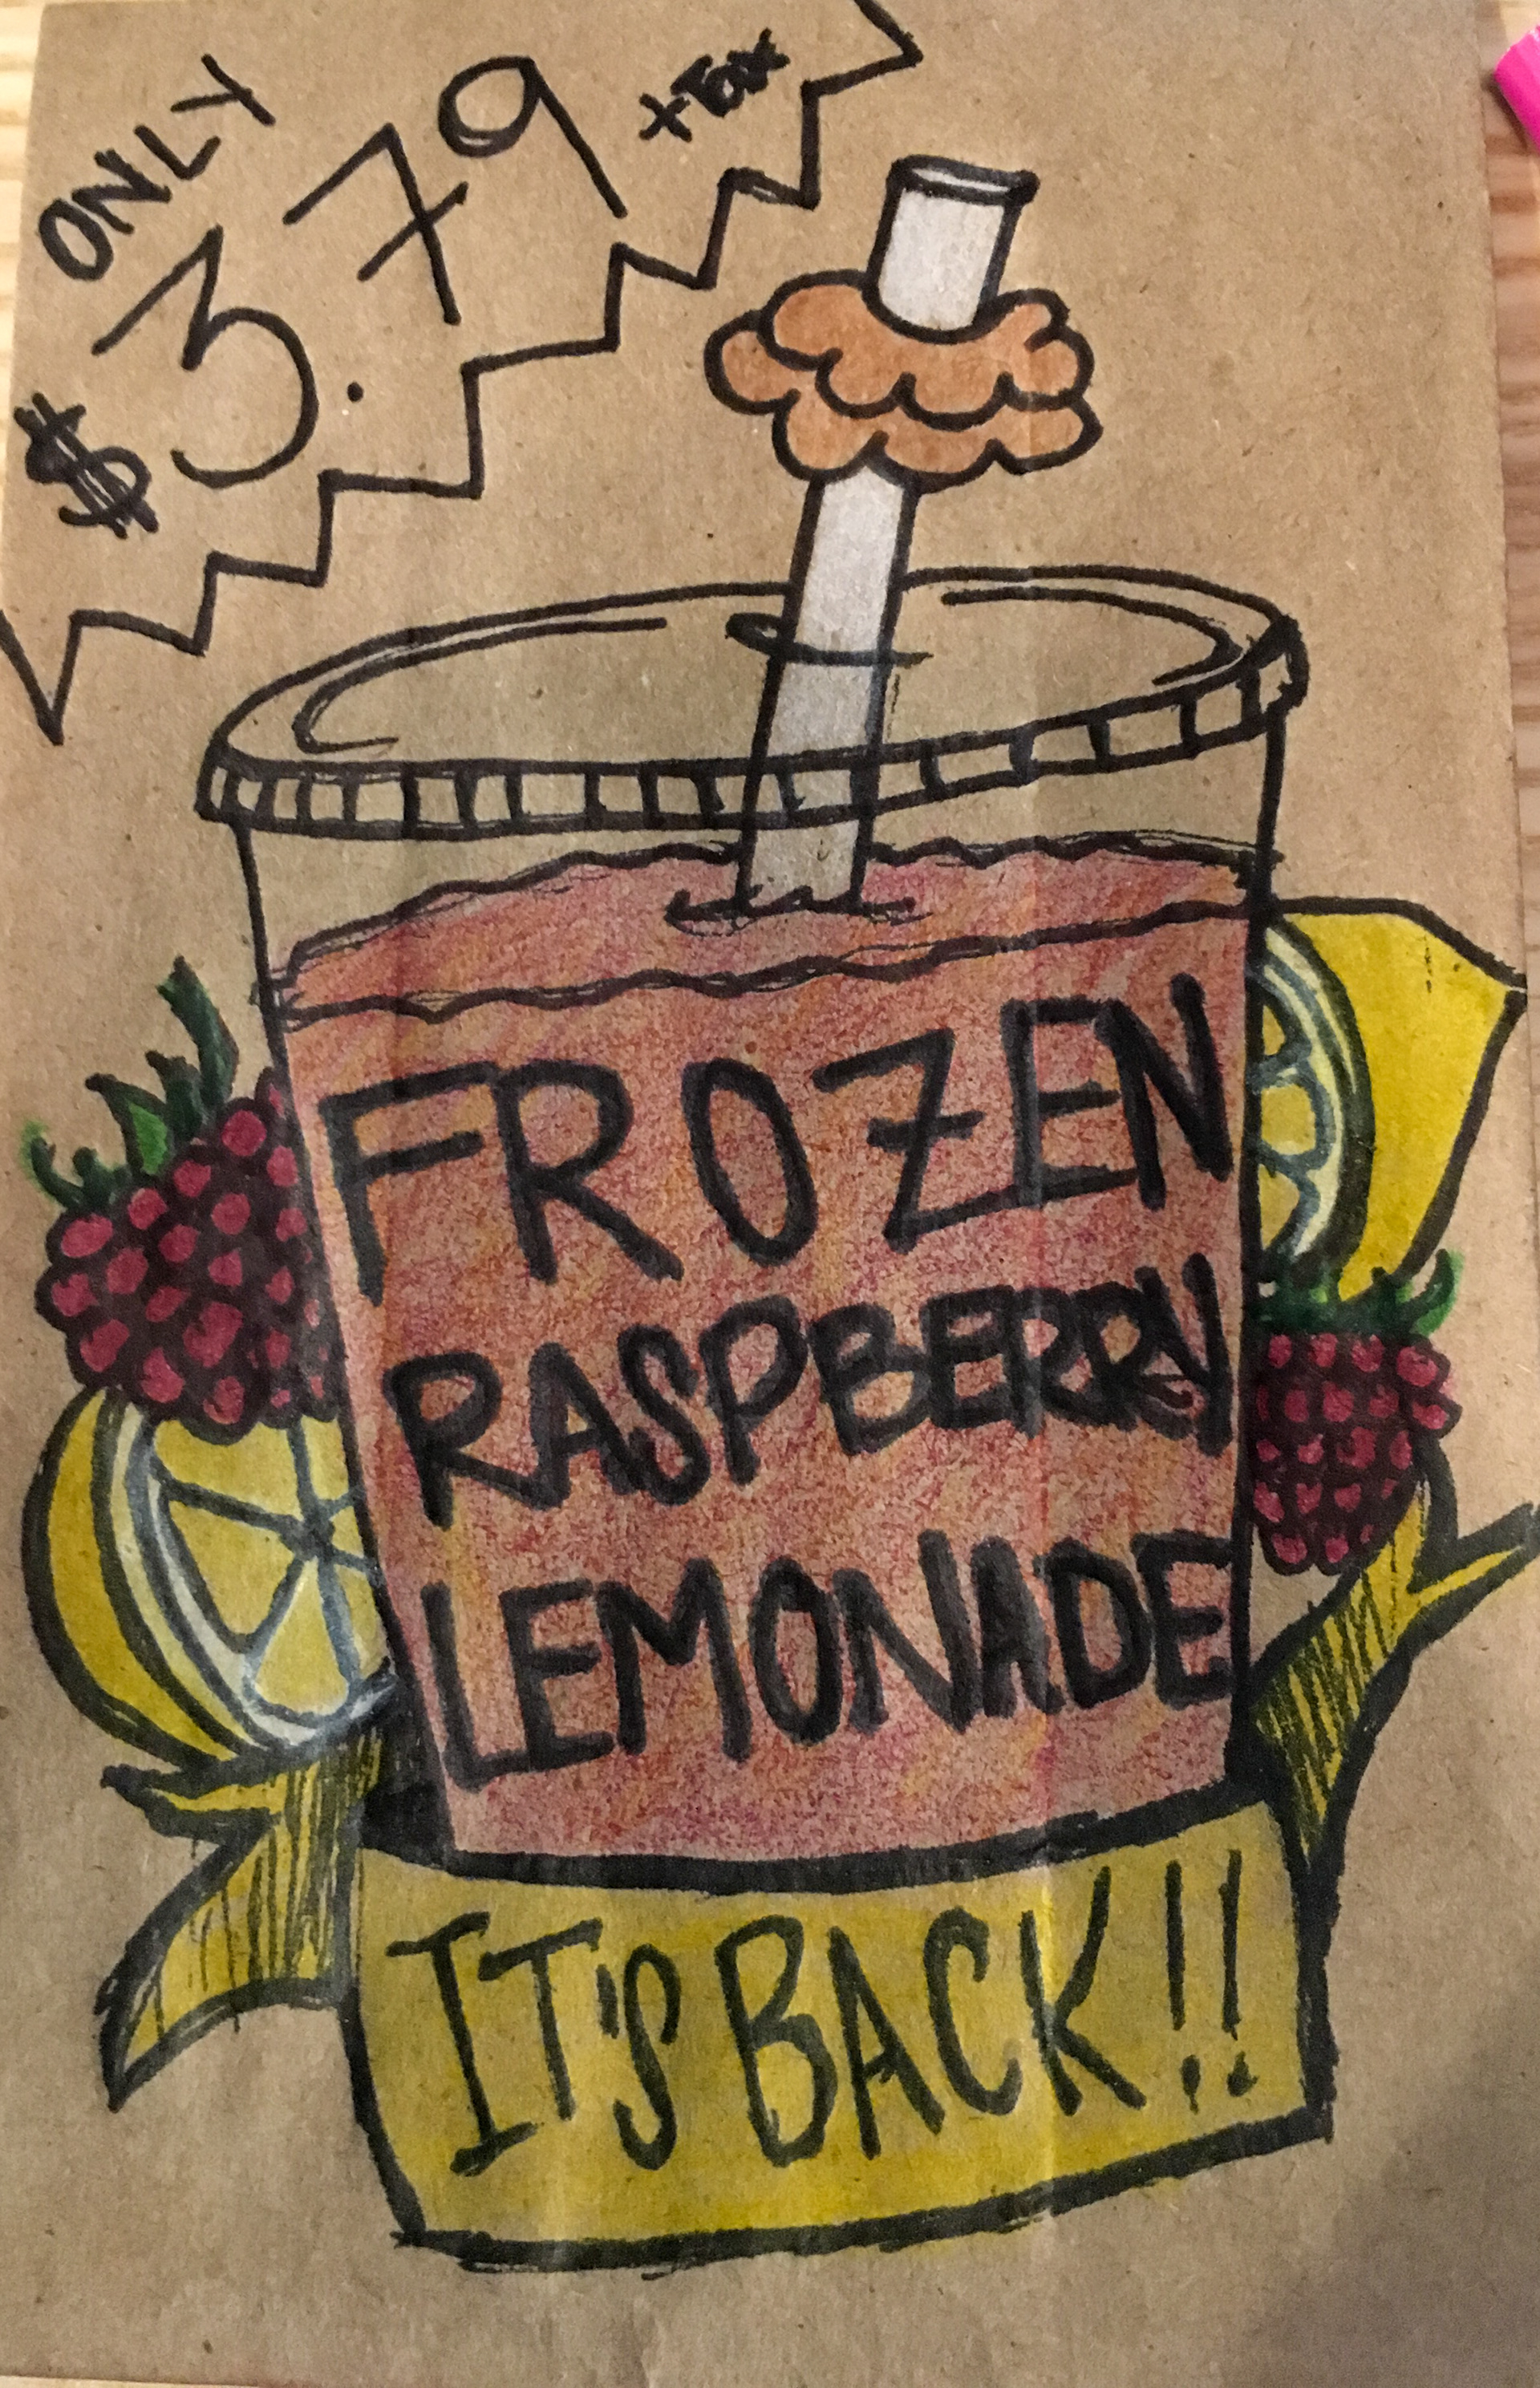 ONLY
$3.79 +Tax
FROZEN
RASPBERRY
LEMONADE
IT'S BACK!!